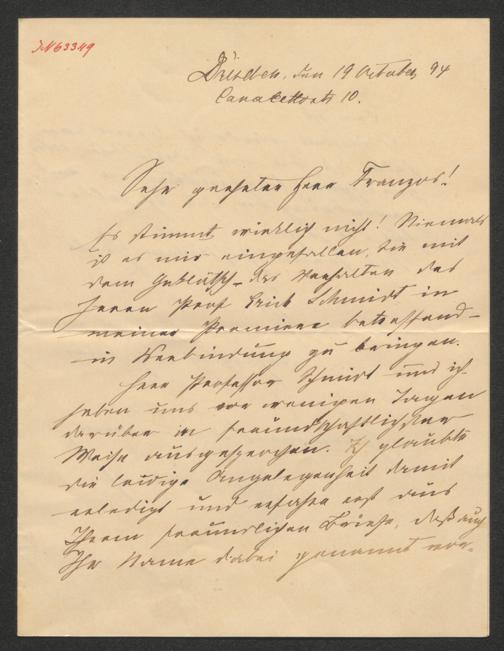 I.N. 63349
Dresden, den 19 October, 94
Canalettostr 10.
Sehr geehrter Herr Franzos!
Es stimmt wirklich nicht! Niemals
ist es mir eingefallen, Sie mit
dem Geklätsch – das Verhalten des
Herrn Prof Erich Schmidt in
meiner Premiere betreffend –
in Verbindung zu bringen.
Herr Professor Schmidt und ich
haben uns vor wenigen Tagen
darüber in freundschaftlichster
Weise ausgesprochen. Ich glaubte
die leidige Angelegenheit damit
erledigt und erfahre erst aus
Ihrem freundlichen Briefe, daß auch
Ihr Name dabei genannt wor-